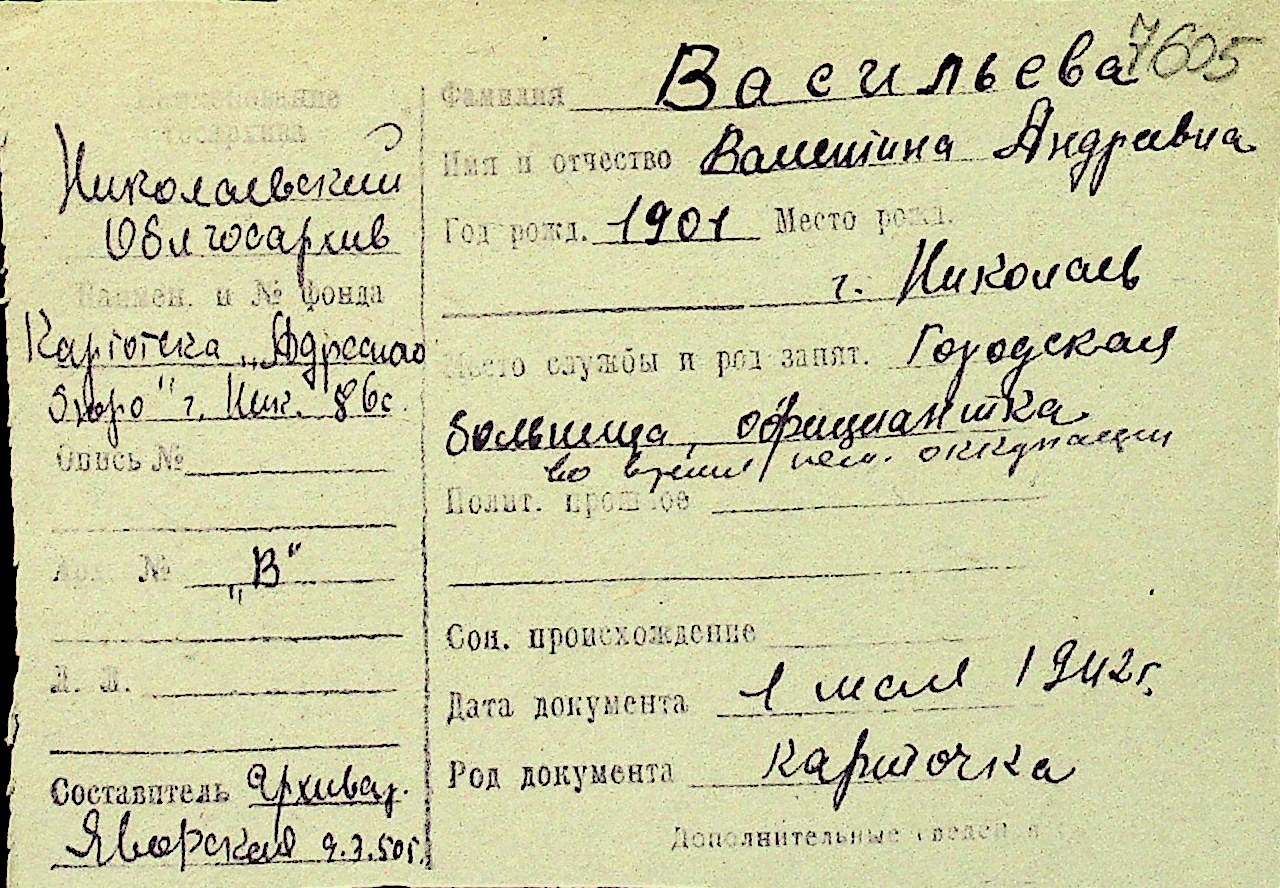 7605
Наименование
госархива
Николаевский
Облгосархив
Наимен. и № фонда
Картотека „Адресного
бюро" г. Ник. 86с.
Опись №
Арх. № „В"
Л. Л.
Составитель Архивар.
Яворская 9.3.50г.
Фамилия Васильева
Имя и отчество Валентина Андревна
Год рожд. 1901 Место рожд.
г. Николаев
Место службы и род занят. Городская
больница, официантка
во время нем. оккупации
Полит. прошлое
Соц. происхождение
Дата документа 1 мая 1942г.
Род документа карточка
Дополнительные сведения